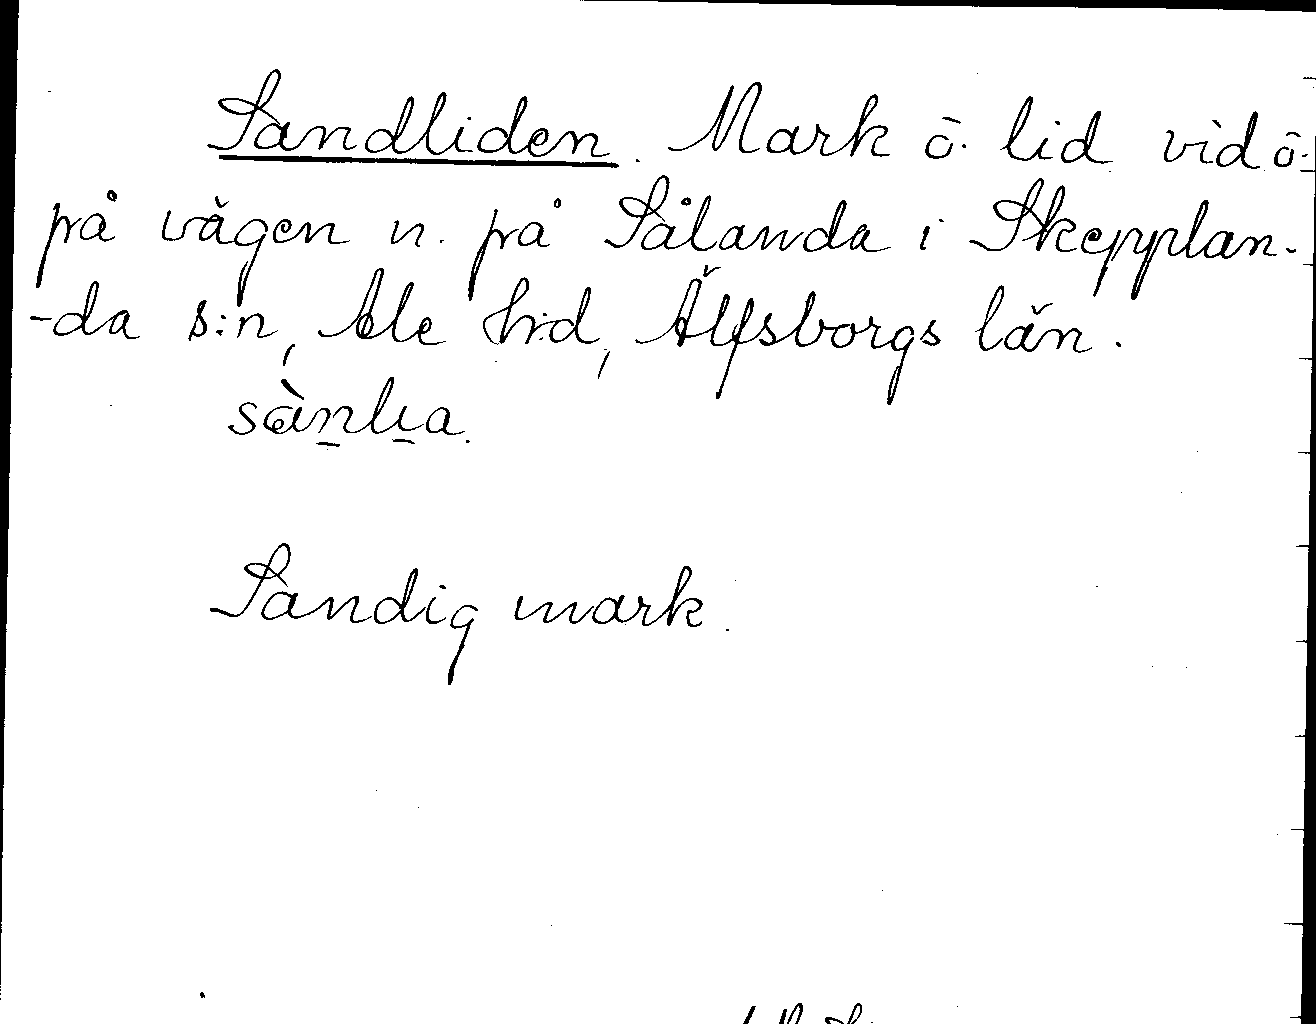 Sandliden. Mark ō. lid vid ō.
på vägen n. på Sålanda i Skepplan-
-da s:n, Ale h:d, Älfsborgs län.
sànlıa.
Sandig mark.